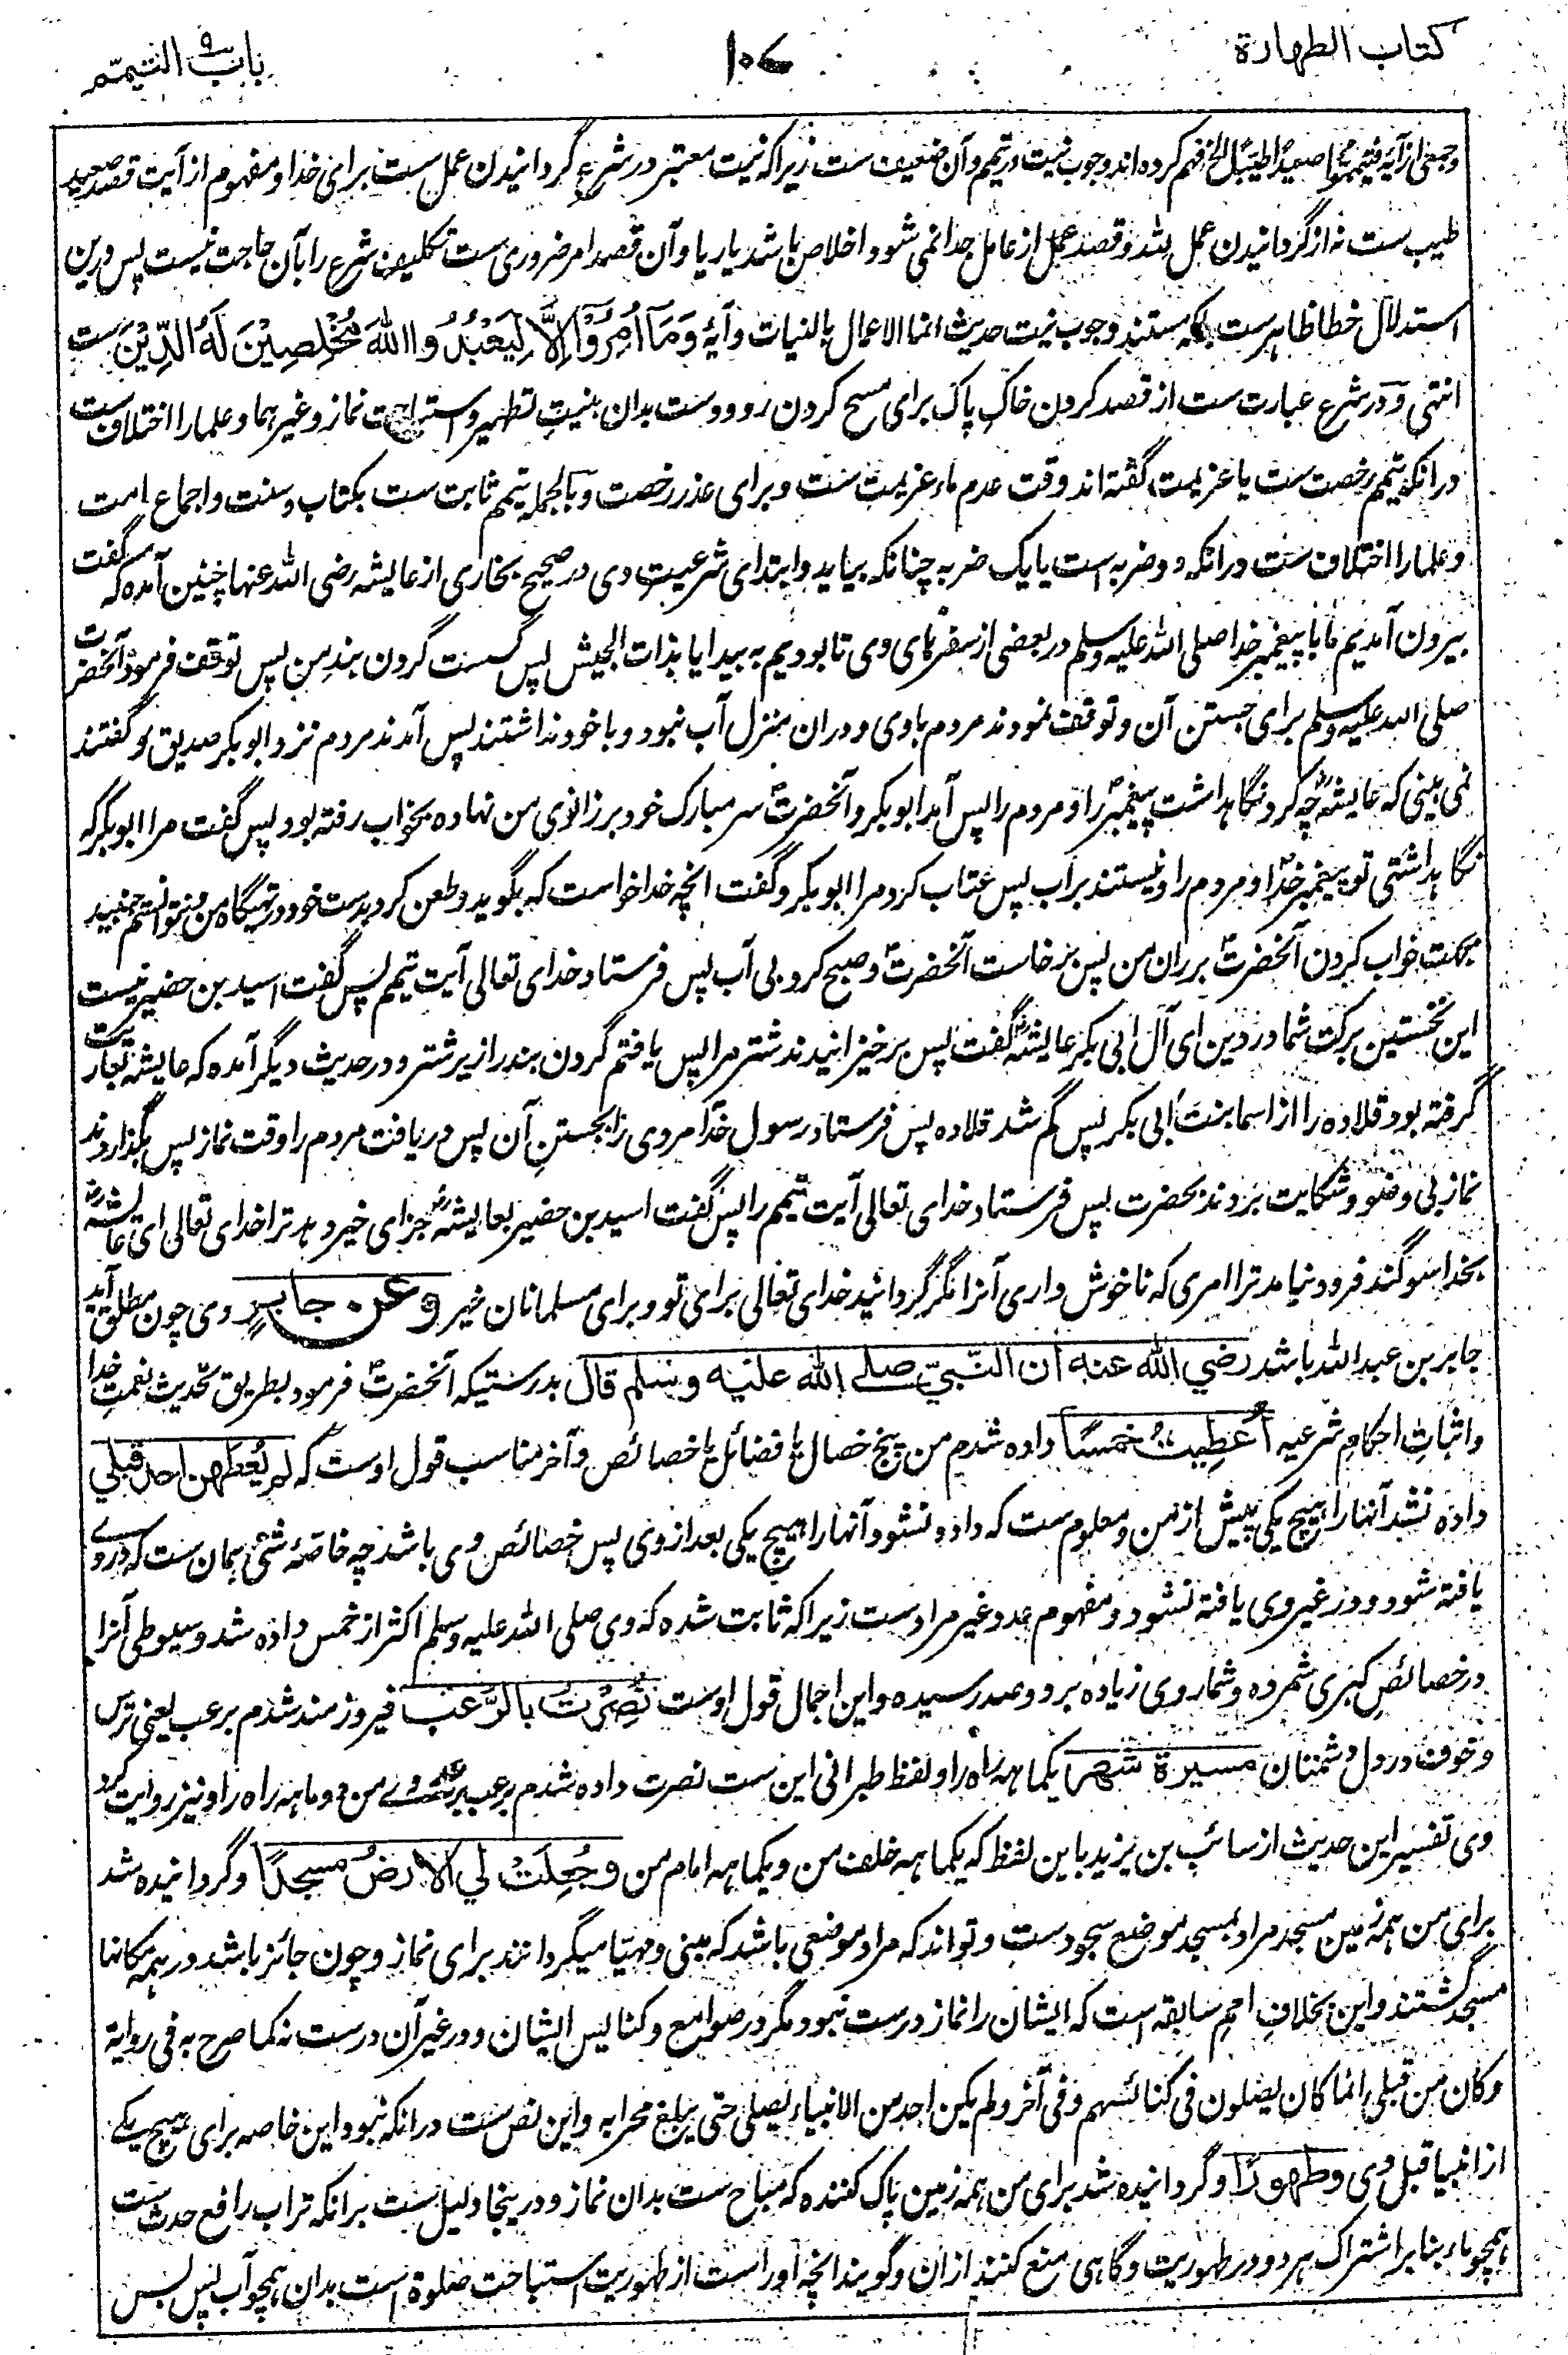 کتاب الطهارة
۱۰۷
باب التیمم
وجمعی از آیۀ فتیمموا صعیدا طیبا الخ فهم کرده‌اند وجوب نیت در تیمم و آن ضعیف ست زیرا که نیت معتبر در شرع گردانیدن عمل ست برای خدا و مفهوم از آیت قصد صعید
طیب ست نه از گردانیدن عمل لله و قصد عمل از عامل جدا نمی شود اخلاص باشد یا ریا و آن قصد امر ضروری ست تکلیف شرع را بآن حاجت نیست پس درین
استدلال خطا ظاهر ست بلکه مستند وجوب نیت حدیث انما الاعمال بالنیات و آیۀ وَمَآ اُمِرُوْٓا اِلَّا لِیَعْبُدُوا اللّٰهَ مُخْلِصِیْنَ لَهُ الدِّیْنَ ست
انتهی و در شرع عبارت ست از قصد کردن خاک پاک برای مسح کردن رو و دست بدان بنیت تطهیر و استباحت نماز و غیرهما و علما را اختلاف ست
در انکه تیمم رخصت ست یا عزیمت گفته‌اند وقت عدم ماء عزیمت ست و برای عذر رخصت و بالجمله تیمم ثابت ست بکتاب و سنت و اجماع امت
و علما را اختلاف ست در انکه دو ضربه است یا یک ضربه چنانکه بیاید و ابتدای شرعیت وی در صحیح بخاری از عایشه رضی الله عنها چنین آمده که گفت
بیرون آمدیم ما با پیغمبر خدا صلی الله علیه وسلم در بعضی از سفرهای وی تا بودیم به بیدا یا بذات الجیش پس گسست گردن بند من پس توقف فرمود آنحضرت
صلی الله علیه وسلم برای جستن آن و توقف نمودند مردم با وی و دران منزل آب نبود و با خود نداشتند پس آمدند مردم نزد ابوبکر صدیق و گفتند
نمی بینی که عایشهؓ چه کرد نگاهداشت پیغمبرؐ را و مردم را پس آمد ابوبکر و آنحضرتؐ سر مبارک خود بر زانوی من نهاده بخواب رفته بود پس گفت مرا ابوبکر که
نگاهداشتی تو پیغمبر خداؐ و مردم را و نیستند بر آب پس عتاب کرد مرا ابوبکر و گفت انچه خدا خواست که بگوید و طعن کرد بدست خود در تهیگاه من و نتوانستم جنبید
بجهت خواب کردن آنحضرتؐ بر ران من پس برخاست آنحضرتؐ و صبح کرد بی آب پس فرستاد خدای تعالی آیت تیمم پس گفت اسید بن حضیر نیست
این نخستین برکت شما در دین ای آل ابی بکر عایشهؓ گفت پس برخیزانیدند شتر مرا پس یافتم گردن بند را زیر شتر و در حدیث دیگر آمده که عایشه بعاریت
گرفته بود قلاده را از اسما بنت ابی بکر پس گم شد قلاده پس فرستاد رسول خداؐ مردی را بجستن آن پس دریافت مردم را وقت نماز پس بگذاردند
نماز بی وضو و شکایت بردند بحضرت پس فرستاد خدای تعالی آیت تیمم را پس گفت اسید بن حضیر بعایشهؓ جزای خیر دهد ترا خدای تعالی ای عائشهؓ
بخدا سوگند فرود نیامد ترا امری که ناخوش داری آنرا مگر گردانید خدای تعالی برای تو و برای مسلمانان خیر وعن جابرٍ وی چون مطلق آید
جابر بن عبدالله باشد رضي الله عنه ان النّبيّ صلے الله علیه وسلم قال بدرستیکه آنحضرتؐ فرمود بطریق تحدیث نعمت خدا
و اثبات احکام شرعیه اُعْطِیتُ خمسًا داده شدم من پنج خصال یا فضائل یا خصائص و آخر مناسب قول اوست که لم یُعْطَهن احد قبلي
داده نشد آنها را هیچ یکی پیش از من و معلوم ست که داده نشود آنها را هیچ یکی بعد از وی پس خصائص وی باشد چه خاصۀ شئ همان ست که در وے
یافته شود و در غیر وی یافته نشود و مفهوم عدد غیر مراد ست زیرا که ثابت شده که وی صلی الله علیه وسلم اکثر از خمس داده شد و سیوطی آنرا
در خصائص کبری شمرده و شمار وی زیاده بر دو صد رسیده و این اجمال قول اوست نُصِرْتُ بالرُّعْبِ فیروزمند شدم برعب یعنی ترس
و خوف در دل دشمنان مسیرة شهر یکماهه راه را و لفظ طبرانی این ست نصرت داده شدم برعب بر عدوے من دو ماهه راه را و نیز روایت کرد
وی تفسیر این حدیث از سائب بن یزید باین لفظ که یکماهه خلف من و یکماهه امام من وجُعِلَتْ لي الارضُ مسجدًا و گردانیده شد
برای من همه زمین مسجد مراد بمسجد موضع سجود ست و تواند که مراد موضعی باشد که مبنی و مهیا میگردانند برای نماز و چون جائز باشد در همه مکانها
مسجد گشتند و این بخلاف امم سابقه است که ایشان را نماز درست نبود مگر در صوامع و کنائیس ایشان و در غیر آن درست نه کما صرح به فی روایة
وکان من قبلی انما کان یصلون فی کنائسهم وفی آخر ولم یکن احد من الانبیاء یصلی حتی یبلغ محرابه و این نص ست در انکه نبود این خاصه برای هیچ یکے
از انبیا قبل وی وطهورًا و گردانیده شد برای من همه زمین پاک کننده که مباح ست بدان نماز و درینجا دلیل ست بر انکه تراب رافع حدث ست
همچو ماء بنا بر اشتراک هر دو در طهوریت و گاهی منع کنند ازان و گویند انچه او راست از طهوریت استباحت صلوة است بدان همچو آب پس بس